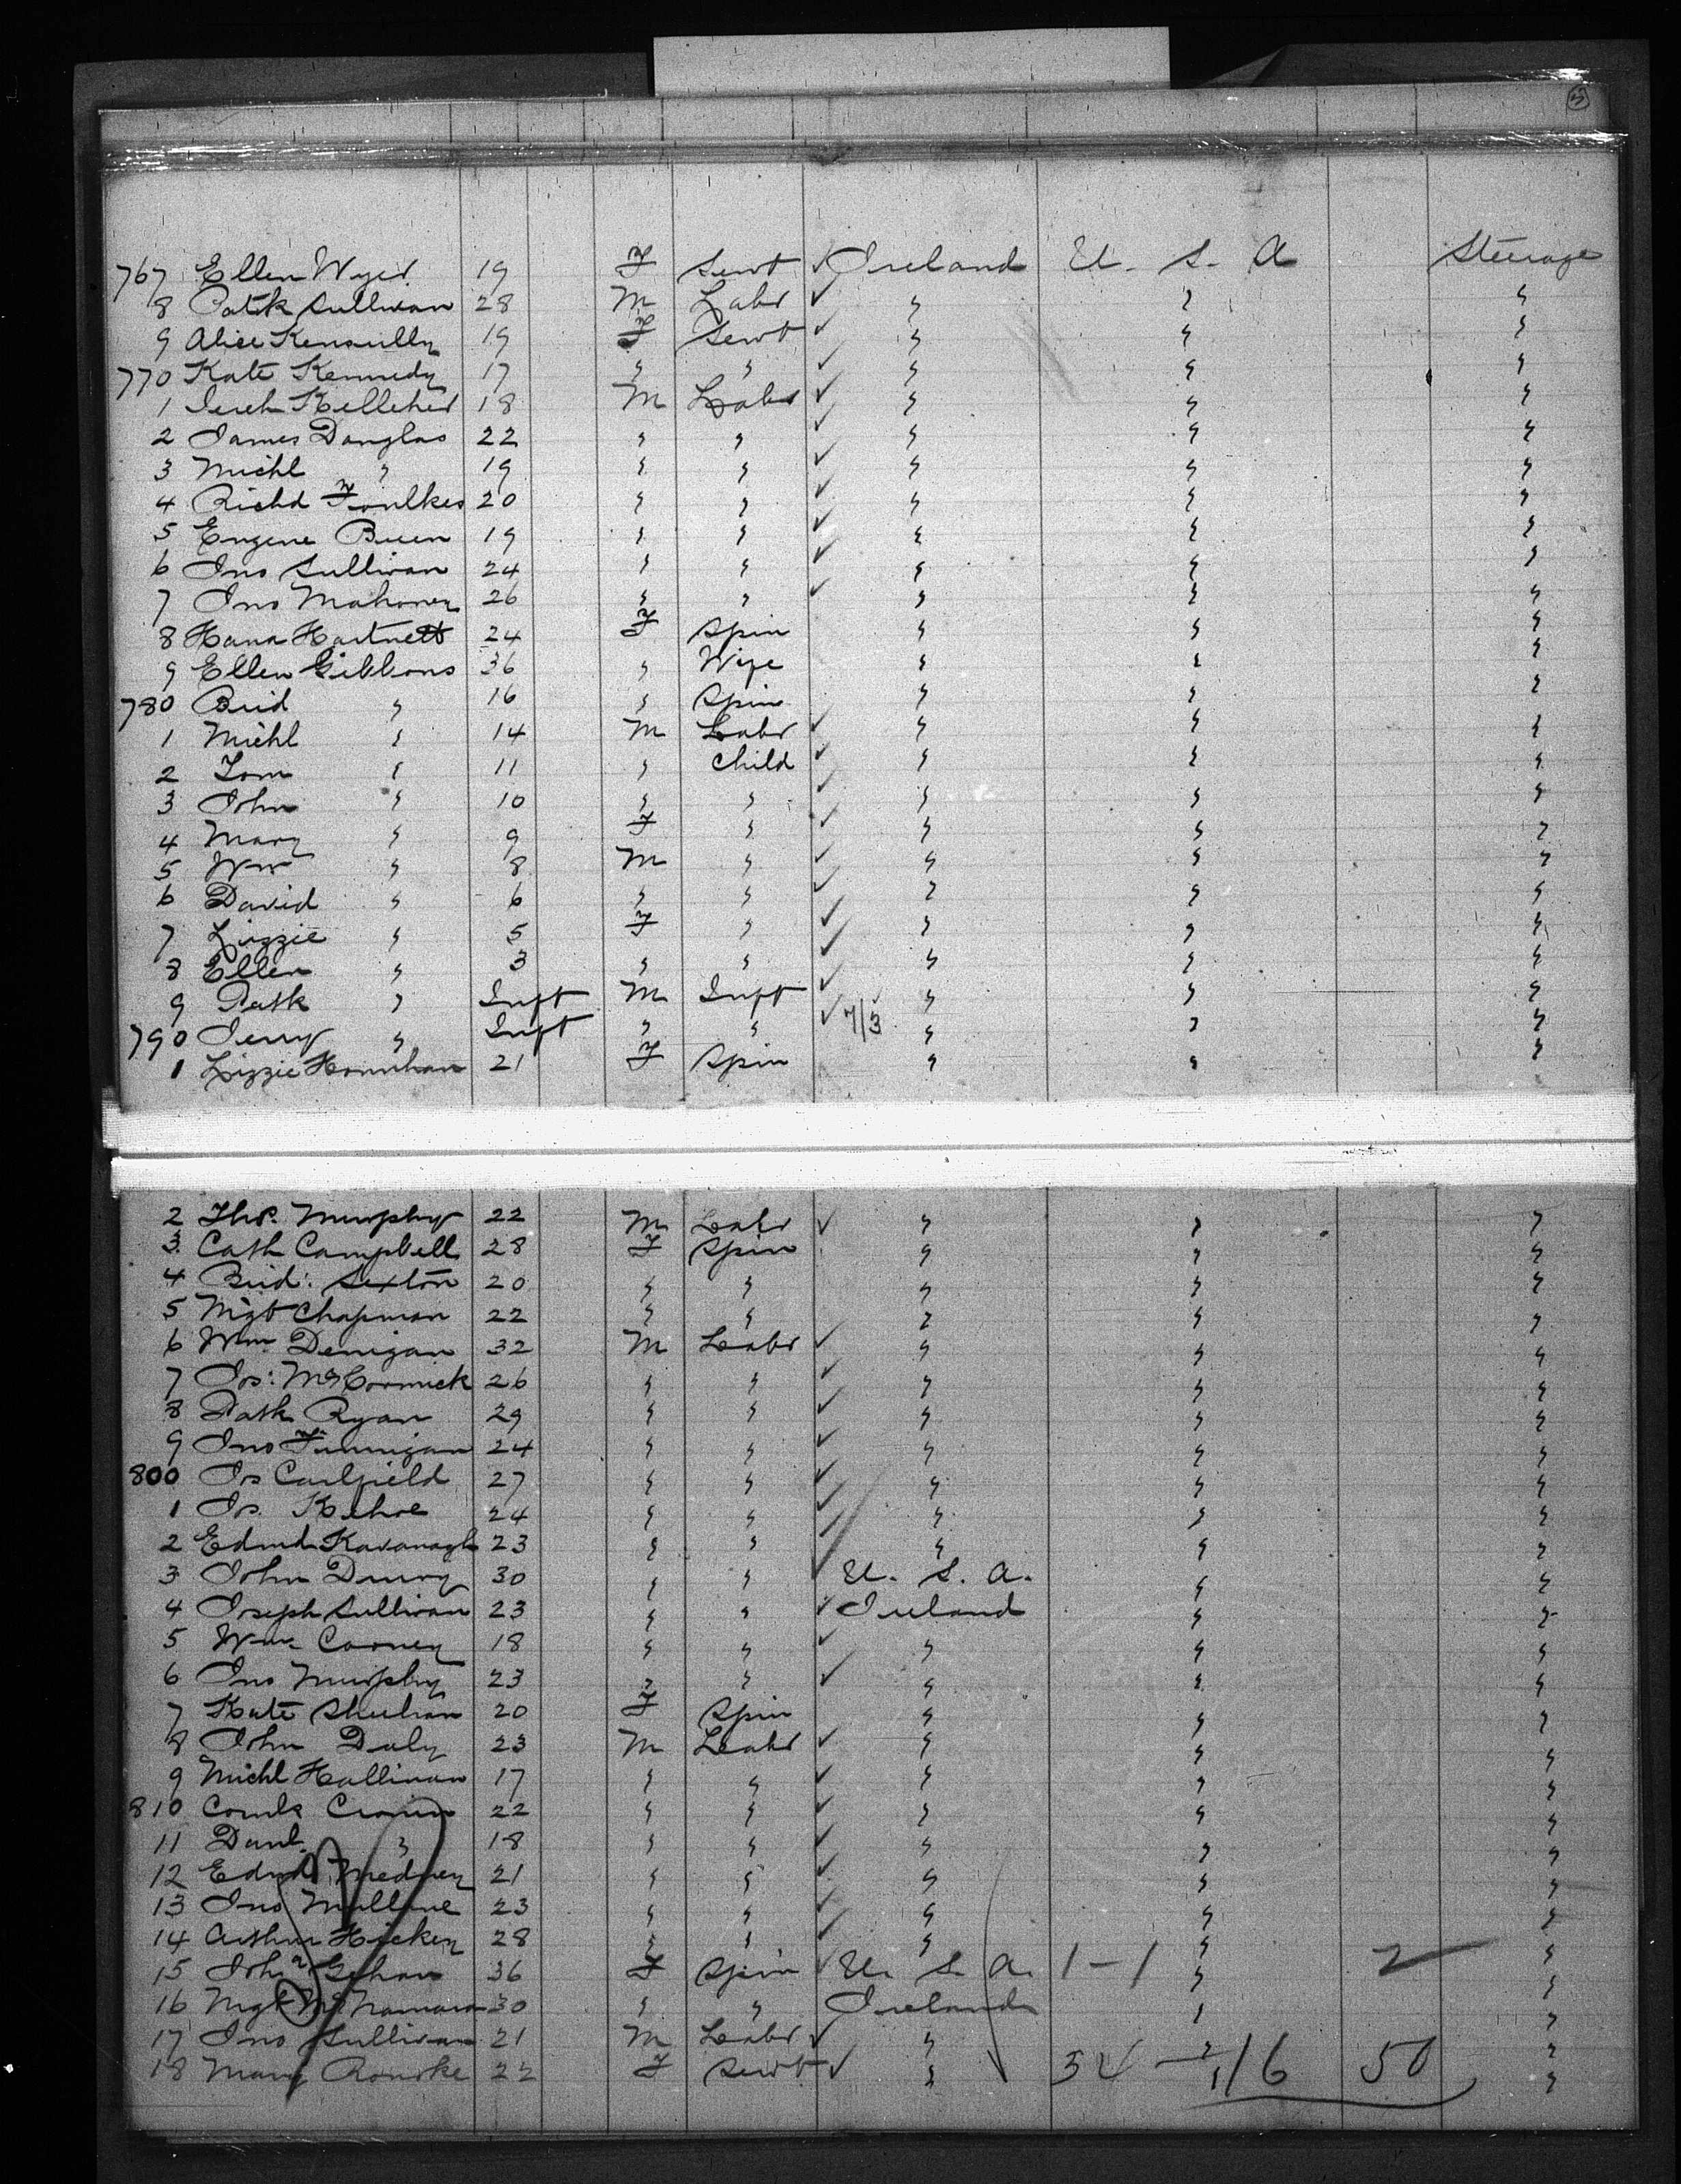 767 Ellen Wyer 19 F Servt ✓ Ireland U. S. A Steerage
8 Patk Sullivan 28 M Labr ✓ " " "
9 Alice Kenseully 19 F Servt ✓ " " "
770 Kate Kennedy 17 " " ✓ " " "
1 Jereh Kelleher 18 M Labr ✓ " " "
2 James Douglas 22 " " ✓ " " "
3 Michl " 19 " " ✓ " " "
4 Richd Foulkes 20 " " ✓ " " "
5 Eugene Breen 19 " " ✓ " " "
6 Jno Sullivan 24 " " ✓ " " "
7 Jno Mahoney 26 " " ✓ " " "
8 Hana Hartnett 24 F Spin " " "
9 Ellen Gibbons 36 " Wife " " "
780 Brid " 16 " Spin " " "
1 Michl " 14 M Labr ✓ " " "
2 Tom " 11 " Child ✓ " " "
3 John " 10 " " ✓ " " "
4 Mary " 9 F " ✓ " " "
5 Wm " 8 M " ✓ " " "
6 David " 6 " " ✓ " " "
7 Lizzie " 5 F " ✓ " " "
8 Ellen " 3 " " ✓ " " "
9 Patk " Inft M Inft ✓ " " "
790 Jerry " Inft " " ✓ 7/3 " " "
1 Lizzie Hounihan 21 F Spin " " "
2 Thos. Murphy 22 M Labr ✓ " " "
3 Cath Campbell 28 F Spin " " "
4 Brid: Sexton 20 " " " " "
5 Mgt Chapman 22 " " " " "
6 Wm Denigan 32 M Labr ✓ " " "
7 Jos: McCormick 26 " " ✓ " " "
8 Patk Ryan 29 " " ✓ " " "
9 Jno Finnigan 24 " " ✓ " " "
800 Js Caulfield 27 " " ✓ " " "
1 Js. Kehoe 24 " " ✓ " " "
2 Edmd Kavanagh 23 " " ✓ " " "
3 John Drury 30 " " ✓ U. S. A. " "
4 Joseph Sullivan 23 " " ✓ Ireland " "
5 Wm Cooney 18 " " ✓ " " "
6 Jno Murphy 23 " " ✓ " " "
7 Kate Sheehan 20 F Spin " " "
8 John Daly 23 M Labr ✓ " " "
9 Michl Hallinan 17 " " ✓ " " "
810 Cornls Cronin 22 " " ✓ " " "
11 Danl. " 18 " " ✓ " " "
12 Edmd Medney 21 " " ✓ " " "
13 Jno Mullane 23 " " ✓ " " "
14 Arthur Hickey 28 " " ✓ " " "
15 Joha Gehan 36 F Spin ✓ U. S. A. 1-1 " 2 "
16 Mgt McNamara 30 " " Ireland " "
17 Jno Sullivan 21 M Labr ✓ " " "
18 Mary Rourke 22 F Servt ✓ " 34 - 16 " 50 "